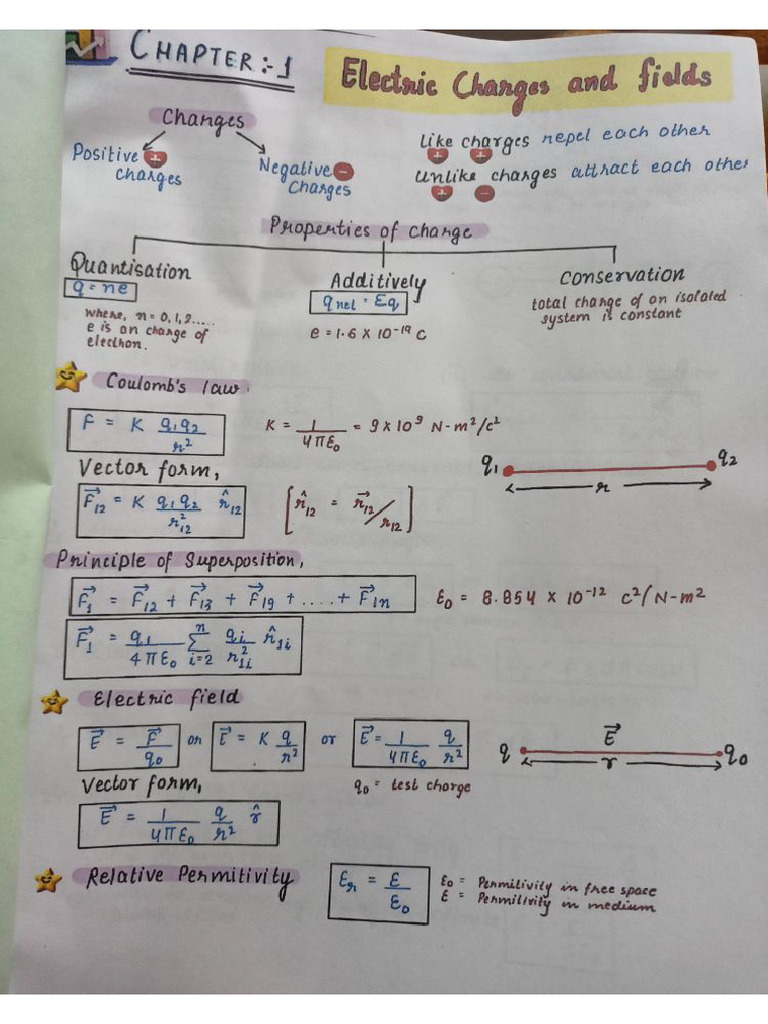 CHAPTER:-1
Electric Charges and fields
Charges
Positive + Charges
Negative - Charges
Like charges repel each other
+ +
Unlike charges attract each other
+ -
Properties of charge
Quantisation
q = ne
where, n = 0, 1, 2.....
e is an charge of
electron.
Additively
qnet = Σq
e = 1.6 × 10⁻¹⁹ C
Conservation
total charge of an isolated
system is constant
Coulomb's law
F = K q₁q₂/r²
K = 1/4πε₀ = 9 × 10⁹ N-m²/c²
q₁ q₂
r
Vector form,
F⃗₁₂ = K q₁q₂/r²₁₂ r̂₁₂
[r̂₁₂ = r⃗₁₂/r₁₂]
Principle of Superposition,
F⃗₁ = F⃗₁₂ + F⃗₁₃ + F⃗₁₉ + .... + F⃗₁n
ε₀ = 8.854 × 10⁻¹² c²/N-m²
F⃗₁ = q₁/4πε₀ Σⁿi=2 qi/r²₁i r̂₁i
Electric field
E⃗ = F⃗/q₀ or E⃗ = K q/r² or E⃗ = 1/4πε₀ q/r²
q E⃗ q₀
r
Vector form,
q₀ = test charge
E⃗ = 1/4πε₀ q/r² r̂
Relative Permitivity
εr = ε/ε₀
ε₀ = Permitivity in free space
ε = Permitivity in medium